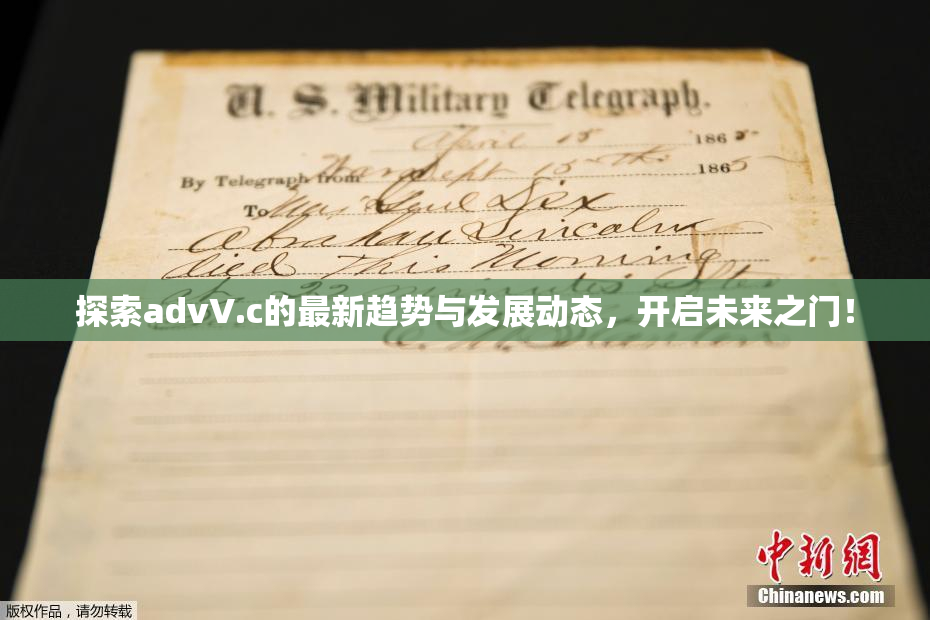 U. S. Military Telegraph.
April 15 1865
By Telegraph from War Dept 15th 1865
To Maj Genl Dix
Abraham Lincoln
died This Morning
at 22 minutes after
探索advV.c的最新趋势与发展动态，开启未来之门！
E. M. Stanton
中新网
Chinanews.com
版权作品，请勿转载